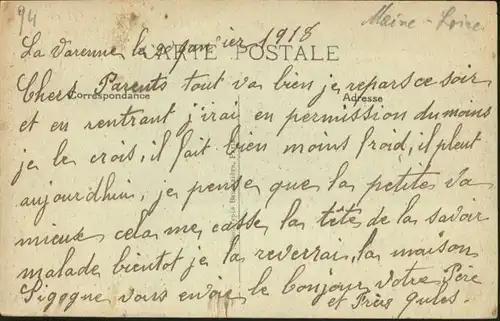 94
Maine - Loire
La Varenne le 2 janvier 1918
CARTE POSTALE
Chers Parents tout va bien je repars ce soir
Correspondance
Adresse
et en rentrant j'irai en permission du moins
je le crois, il fait bien moins froid, il pleut
aujourdhui, je pense que la petites va
mieux cela me casse la tête de la savoir
malade bientot je la reverrai, la maison
Pigogne vous envoie le bonjour votre Père
et Près Jules.